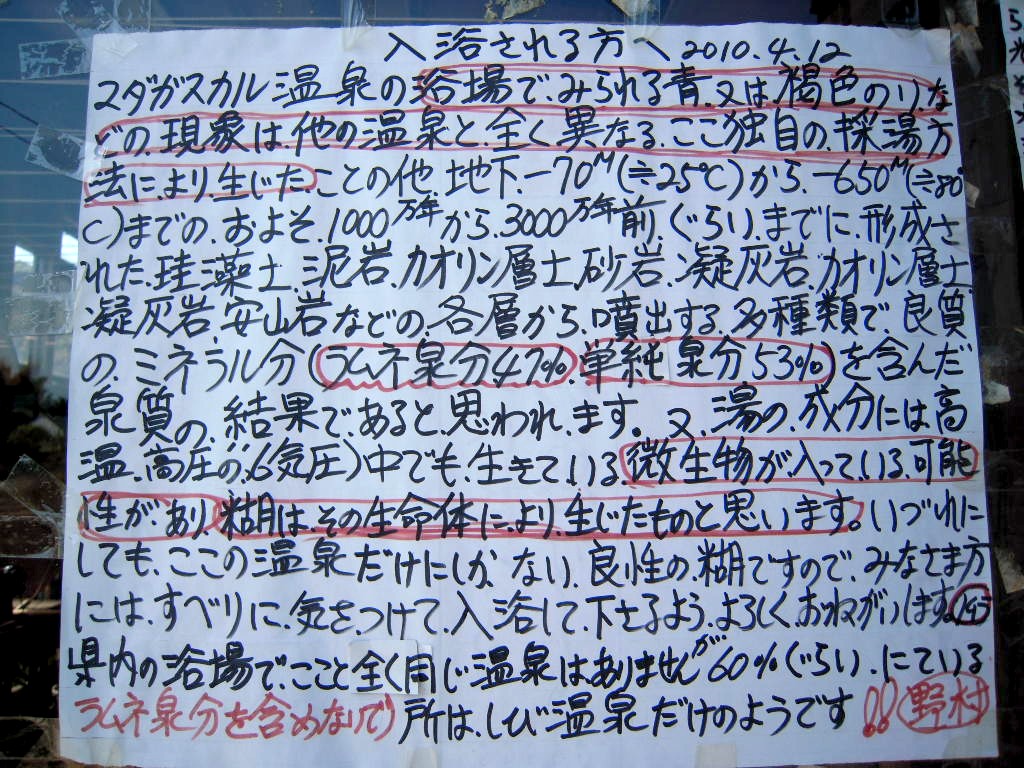 入浴される方へ 2010.4.12
マダガスカル温泉の浴場で、みられる青、又は、褐色ののりな
どの、現象は、他の温泉と、全く異なる、ここ独自の、採湯方
法に、より生いた、ことの他、地下、-70M(≒25℃)から、-650M(≒80°
C)までの、およそ、1000万年から、3000万年前ぐらい、までに、形成さ
れた、珪藻土、泥岩、カオリン層土、砂岩、凝灰岩、カオリン層土、
凝灰岩、安山岩などの、各層から、噴出する、多種類で、良質
の、ミネラル分(ラムネ泉分47%、単純泉分53%)を含んだ
泉質の、結果で、あると、思われ、ます。又、湯の、成分には、高
温、高圧の、(6気圧)中でも、生きて、いる、微生物が、入って、いる、可能
性が、あり、糊は、その生命体に、より、生じたものと思います。いづれに
しても、ここの温泉だけにしか、ない、良性の、糊ですので、みなさま方
には、すべりに、気を、つけて、入浴して、下さるよう、よろしく、おねがいします。
県内の浴場で、ここと全く同じ温泉はありませんが60%ぐらい、にている
ラムネ泉分を含めないで)所は、しび温泉だけのようです!! 野村